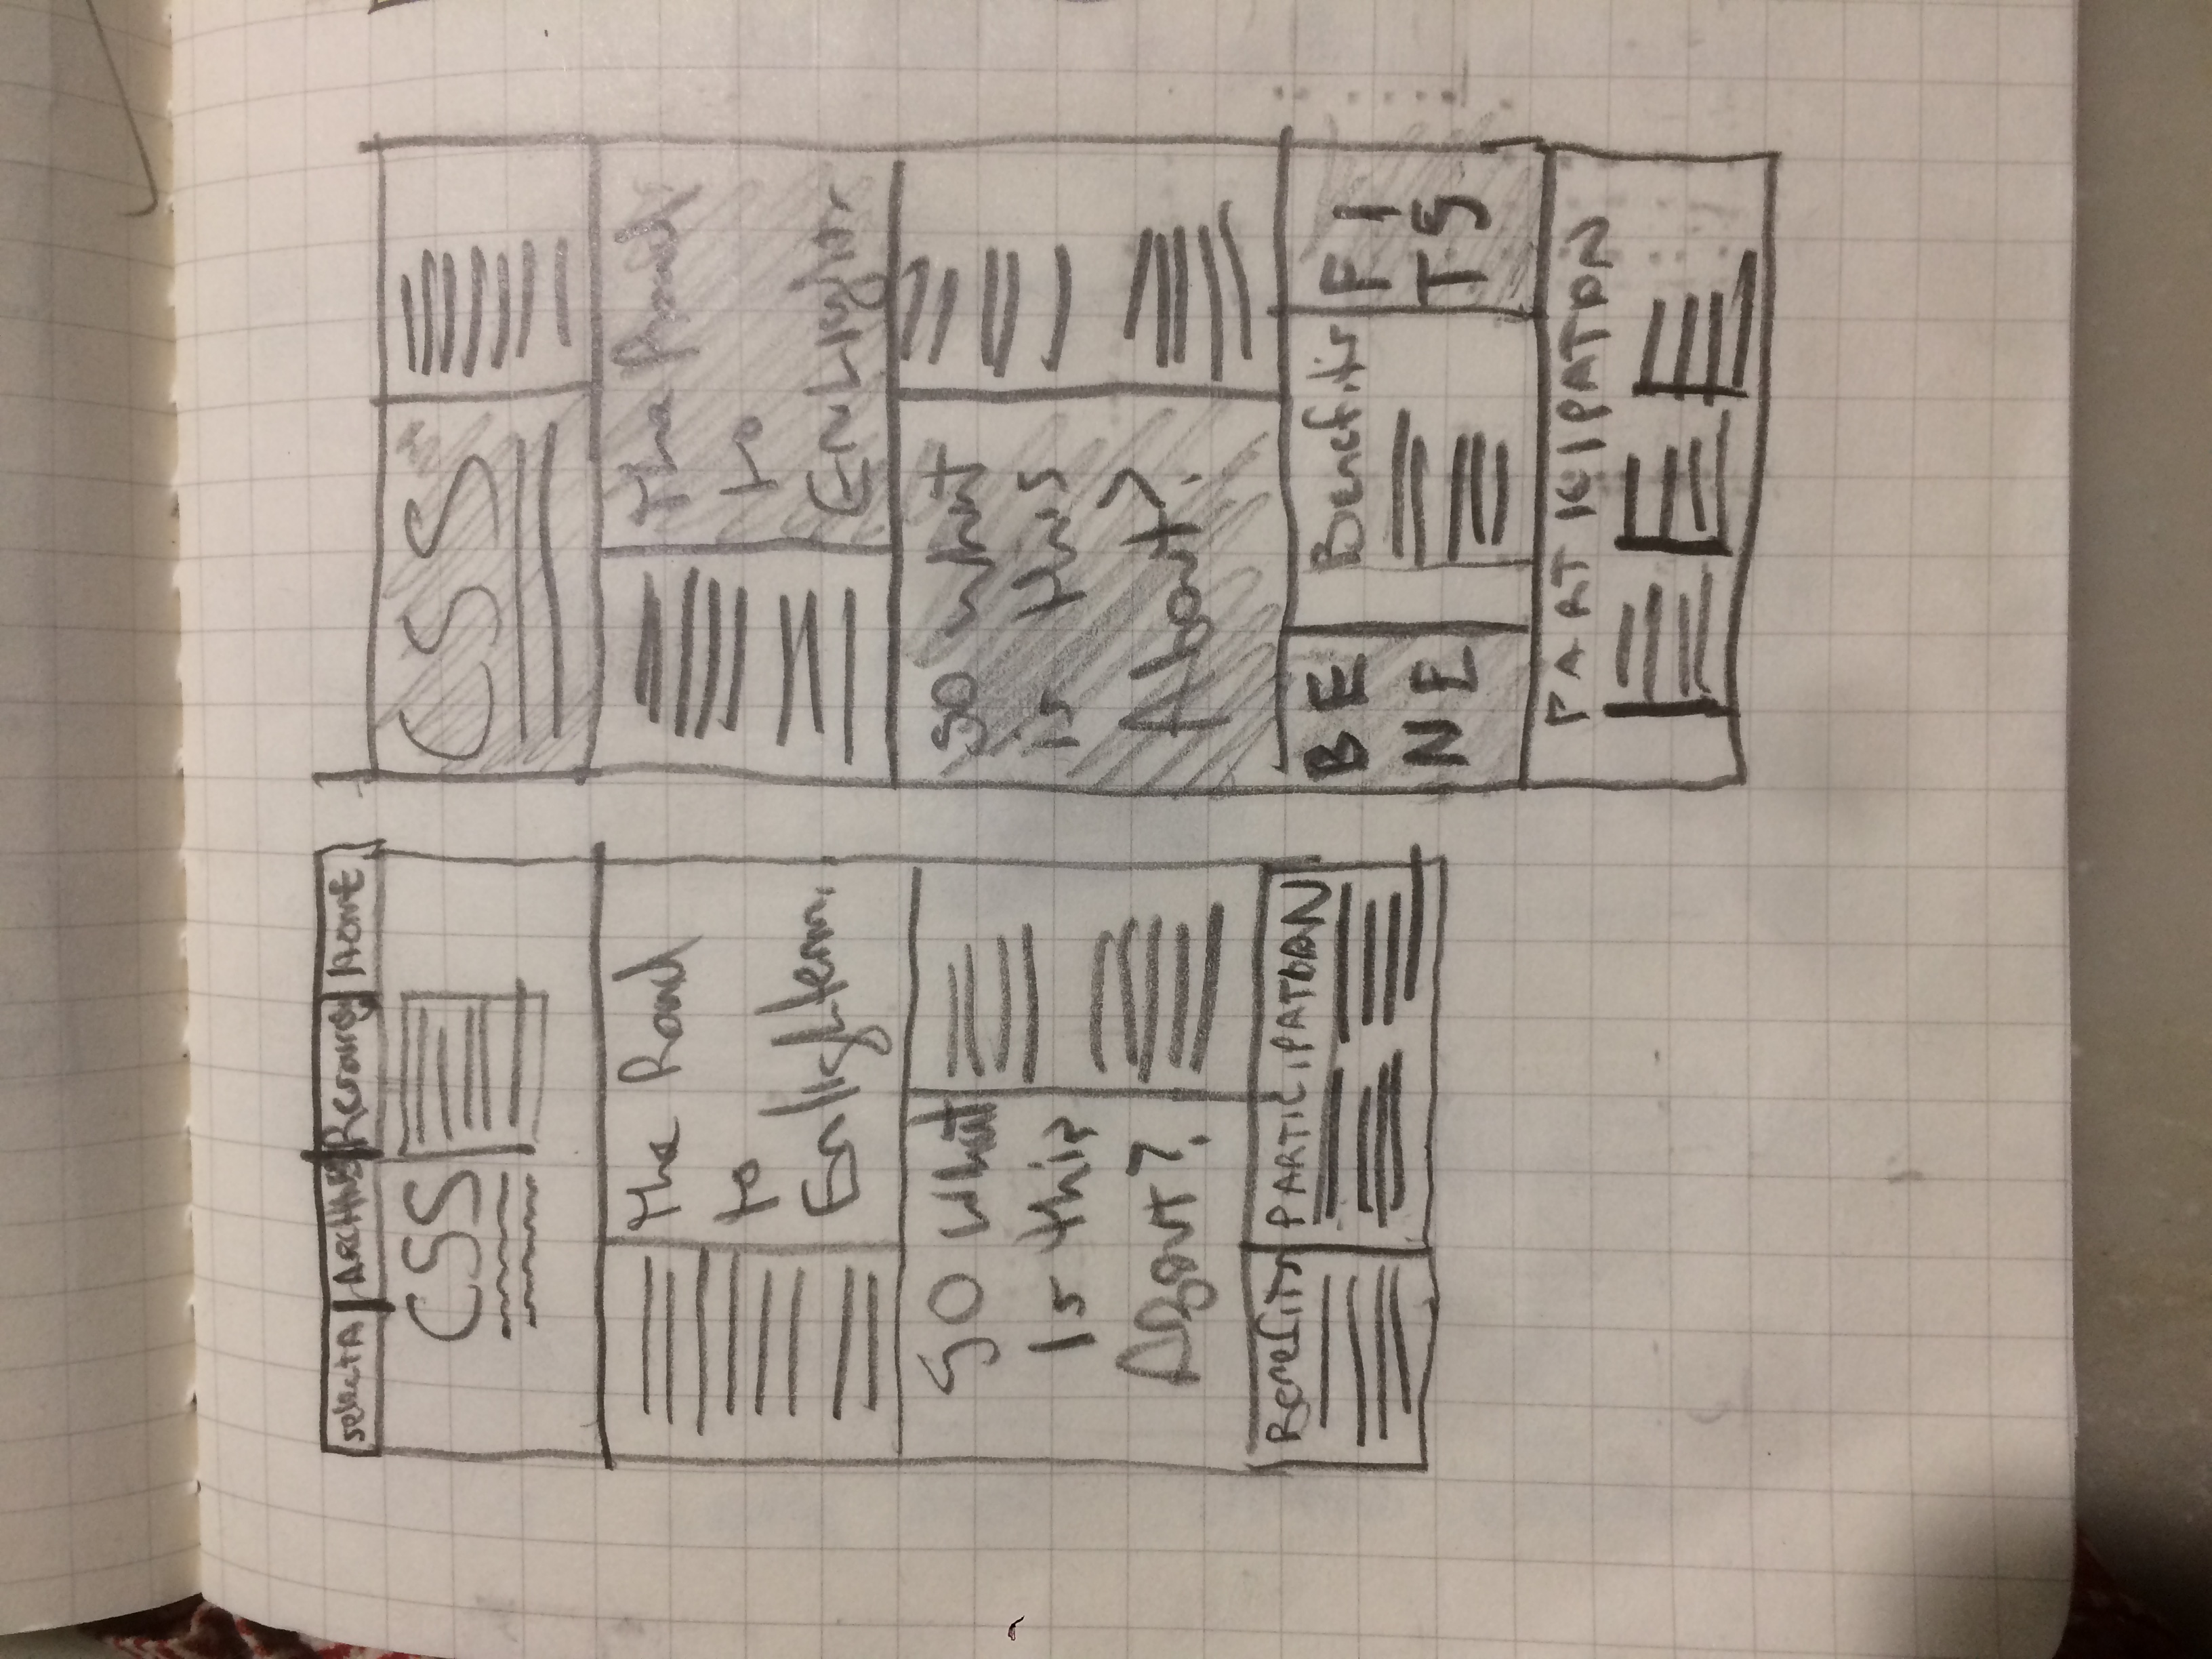 Select A ARCHIVES Resources HOME
CSS
The Road
to
Enlightenm.
SO What
Is this
About?
Benefits PARTICIPATION
CSS
The Road
to
EnLight.
SO what
is this
About?
B E
N E
Benefits
F I
T S
PARTICIPATON